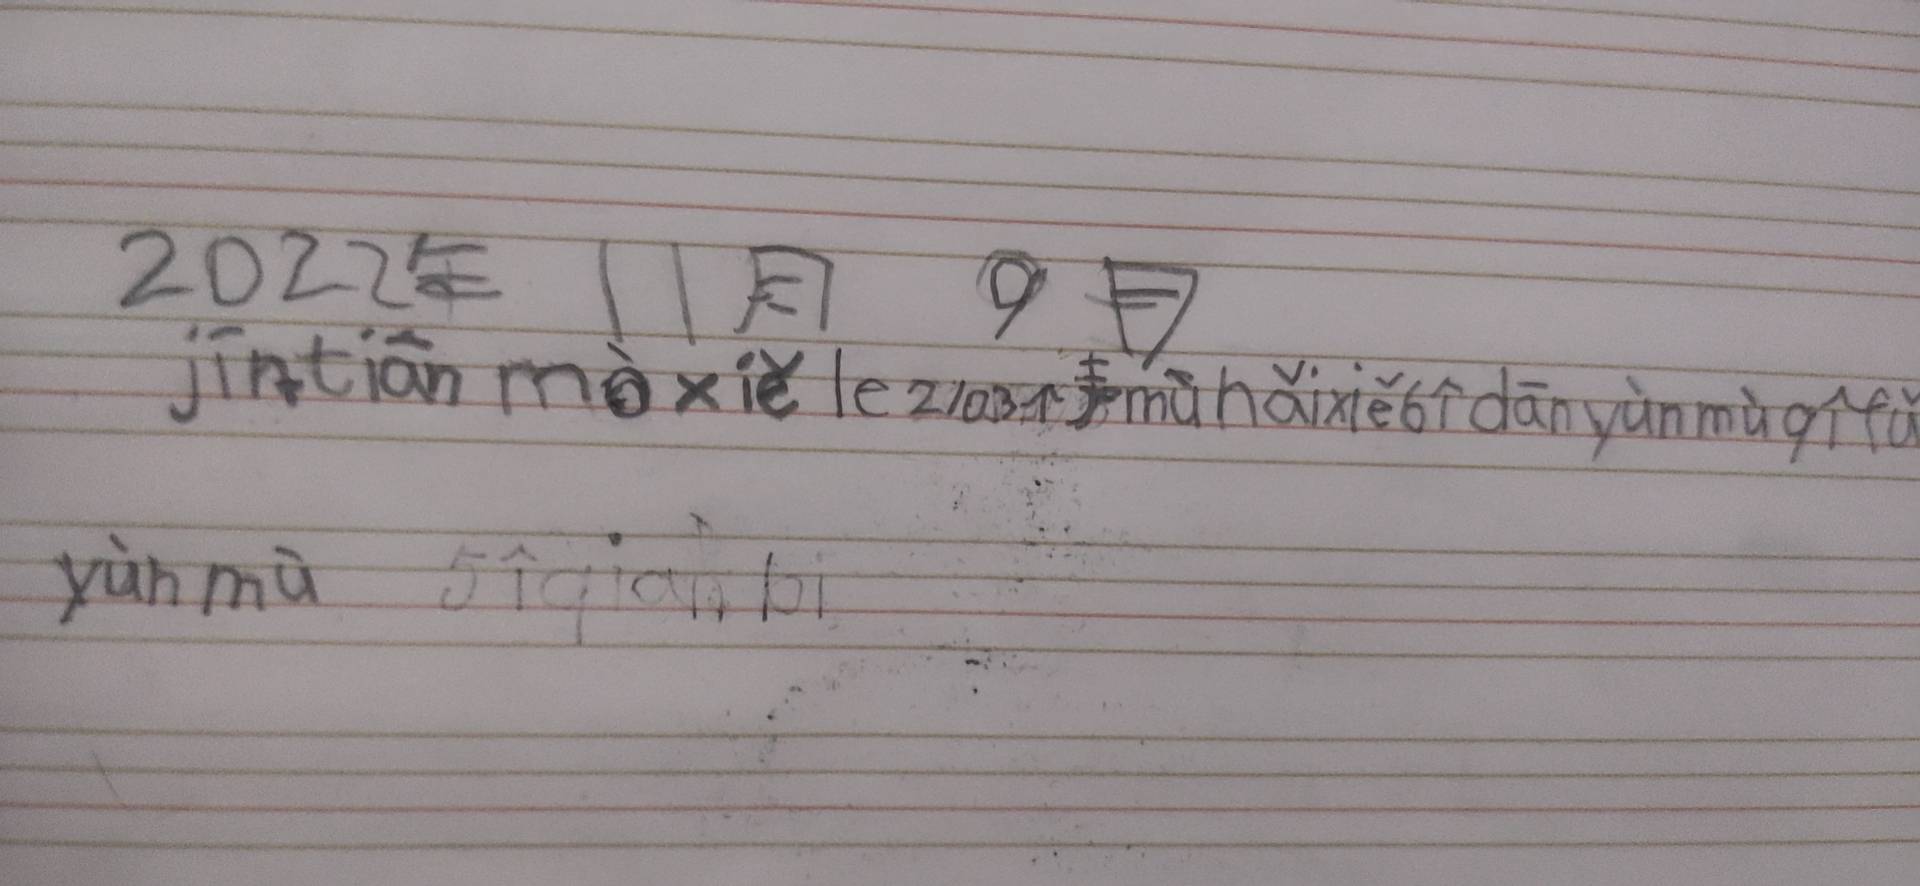 2022年 11月 9日
jīntiān mò xiě le 23个声mǔ hǎixiě6个dānyùnmǔ9个fù
yùnmǔ 5个qiánbí